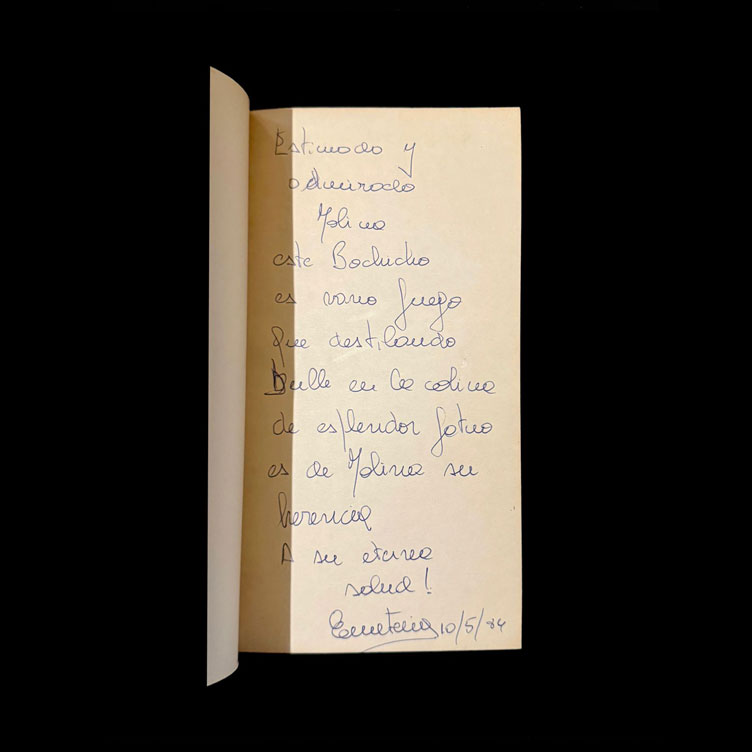 Estimado y
admirado
Molina
este Bachicho
es vano fuego
que destilando
Bulle en la colina
de esplendor fatuo
es de Molina su
herencia
A su eterna
salud!
10/5/84